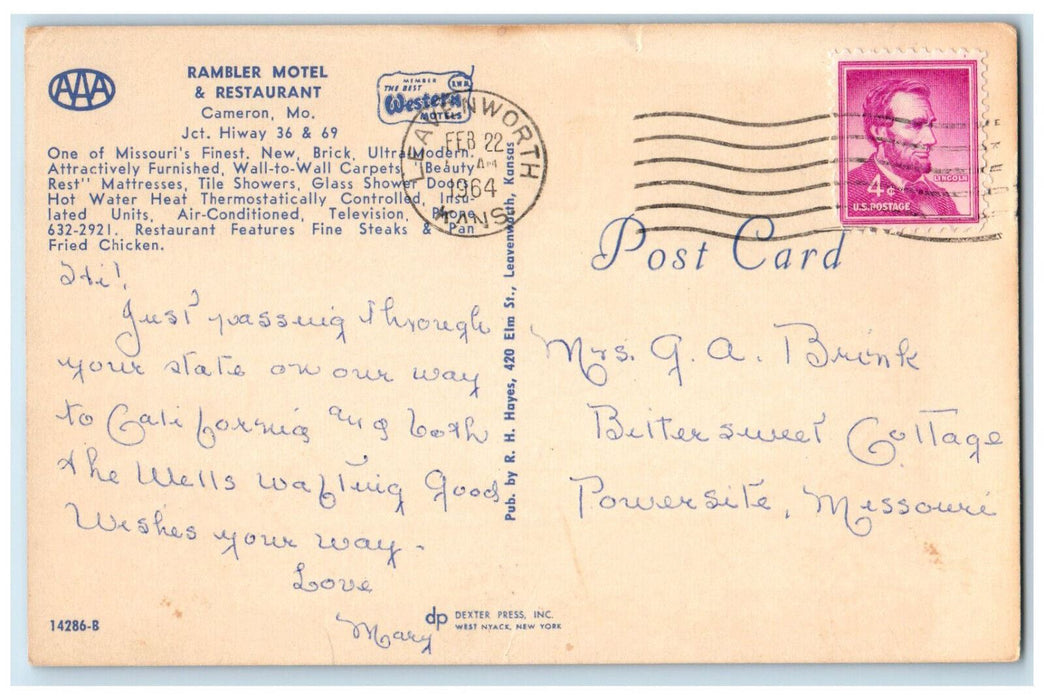 AAA
RAMBLER MOTEL
& RESTAURANT
Cameron, Mo.
Jct. Hiway 36 & 69
One of Missouri's Finest. New, Brick, Ultra-Modern.
Attractively Furnished, Wall-to-Wall Carpets, "Beauty
Rest" Mattresses, Tile Showers, Glass Shower Doors,
Hot Water Heat Thermostatically Controlled, Insu-
lated Units, Air-Conditioned, Television, Phone
632-2921. Restaurant Features Fine Steaks & Pan
Fried Chicken.
MEMBER
THE BEST
Western
MOTELS
B.W.M.
LEAVENWORTH
FEB 22
AM
1964
KANS
LINCOLN
4¢
U.S. POSTAGE
Post Card
Hi!
Just passing through
your state on our way
to California and both
the Wells wafting Good
Wishes your way.
Love
Mary
Pub. by R. H. Hayes, 420 Elm St., Leavenworth, Kansas
Mrs. G. A. Brink
Bittersweet Cottage
Powersite, Missouri
14286-B
dp DEXTER PRESS, INC.
WEST NYACK, NEW YORK